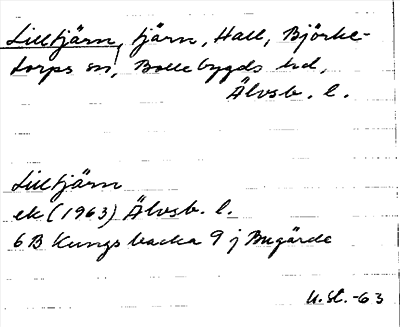 Lilltjärn, tjärn, Hall, Björke-
torps sn, Bollebygds hd,
Älvsb. l.
Lilltjärn
ek (1963) Älvsb. l.
6B Kungsbacka 9 j Bugärde
U.St.-63